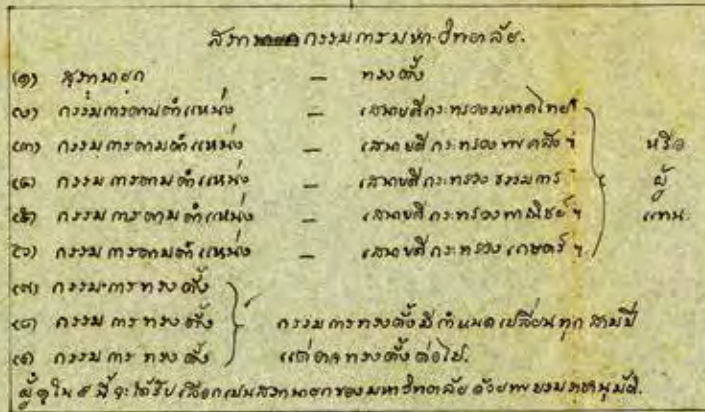 สภากรรมการมหาวิทยาลัย.
(๑) สภานายก — ทรงตั้ง
(๒) กรรมการตามตำแหน่ง — เสนาบดีกระทรวงมหาดไทยฯ
(๓) กรรมการตามตำแหน่ง — เสนาบดีกระทรวงพระคลังฯ หรือ
(๔) กรรมการตามตำแหน่ง — เสนาบดีกระทรวงธรรมการฯ ผู้
(๕) กรรมการตามตำแหน่ง — เสนาบดีกระทรวงพาณิชย์ฯ แทน.
(๖) กรรมการตามตำแหน่ง — เสนาบดีกระทรวงเกษตร์ฯ
(๗) กรรมการทรงตั้ง
(๘) กรรมการทรงตั้ง กรรมการทรงตั้งมีกำหนดเปลี่ยนทุกสามปี
(๙) กรรมการทรงตั้ง แต่อาจทรงตั้งต่อไป.
ผู้ใดใน ๙ นี้จะได้รับเลือกเปนสภานายกของมหาวิทยาลัยด้วยพระบรมราชานุมัติ.